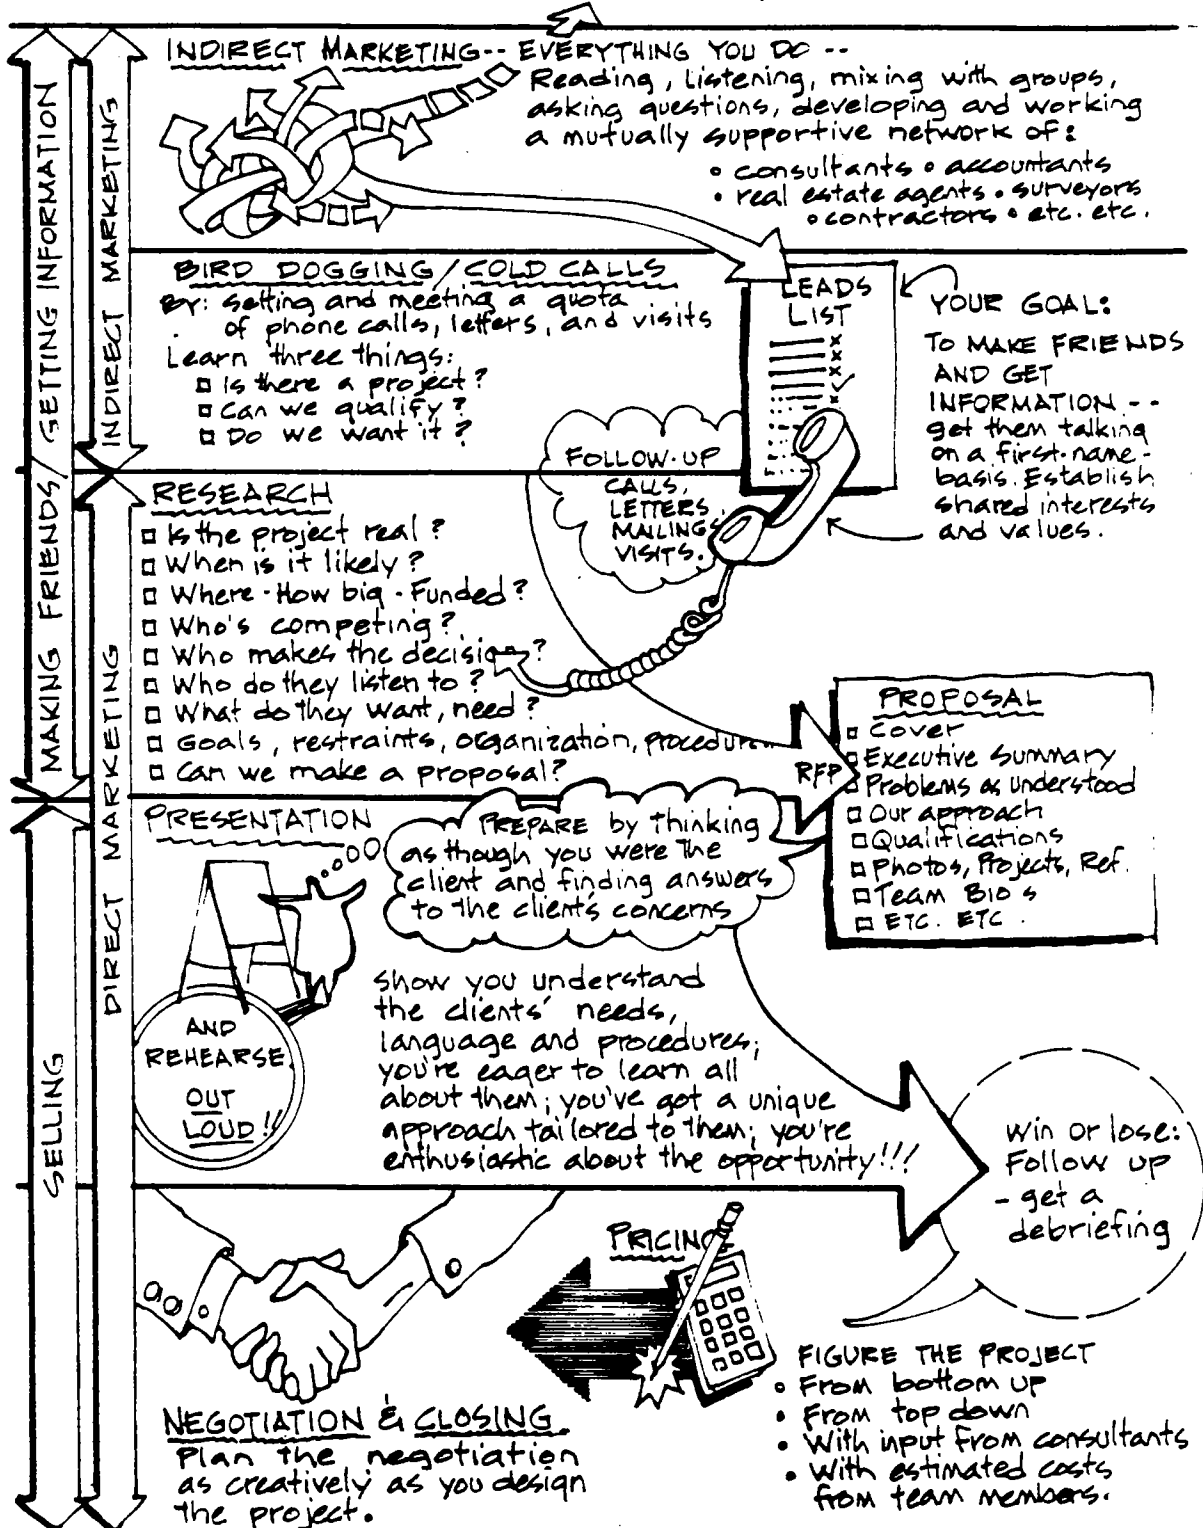 INDIRECT MARKETING -- EVERYTHING YOU DO --
Reading, Listening, mixing with groups,
asking questions, developing and working
a mutually supportive network of:
• consultants • accountants
• real estate agents • surveyors
• contractors • etc. etc.
MAKING FRIENDS / GETTING INFORMATION
INDIRECT MARKETING
BIRD DOGGING / COLD CALLS
BY: setting and meeting a quota
of phone calls, letters, and visits
Learn three things:
□ Is there a project?
□ Can we qualify?
□ Do we want it?
LEADS
LIST
YOUR GOAL:
TO MAKE FRIENDS
AND GET
INFORMATION --
get them talking
on a first-name-
basis. Establish
shared interests
and values.
FOLLOW-UP
CALLS,
LETTERS,
MAILINGS
VISITS.
DIRECT MARKETING
RESEARCH
□ Is the project real?
□ When is it likely?
□ Where - How big - Funded?
□ Who's competing?
□ Who makes the decision?
□ Who do they listen to?
□ What do they want, need?
□ Goals, restraints, organization, procedures
□ Can we make a proposal?
RFP
PROPOSAL
□ Cover
□ Executive Summary
□ Problems as understood
□ Our approach
□ Qualifications
□ Photos, Projects, Ref.
□ Team Bio s
□ ETC. ETC.
SELLING
PRESENTATION
PREPARE by thinking
as though you were the
client and finding answers
to the client's concerns
AND
REHEARSE
OUT
LOUD!!
Show you understand
the clients' needs,
language and procedures;
you're eager to learn all
about them; you've got a unique
approach tailored to them; you're
enthusiastic about the opportunity!!!
Win or lose:
Follow up
- get a
debriefing
PRICING
FIGURE THE PROJECT
• From bottom up
• From top down
• With input from consultants
• With estimated costs
from team members.
NEGOTIATION & CLOSING
Plan the negotiation
as creatively as you design
the project.